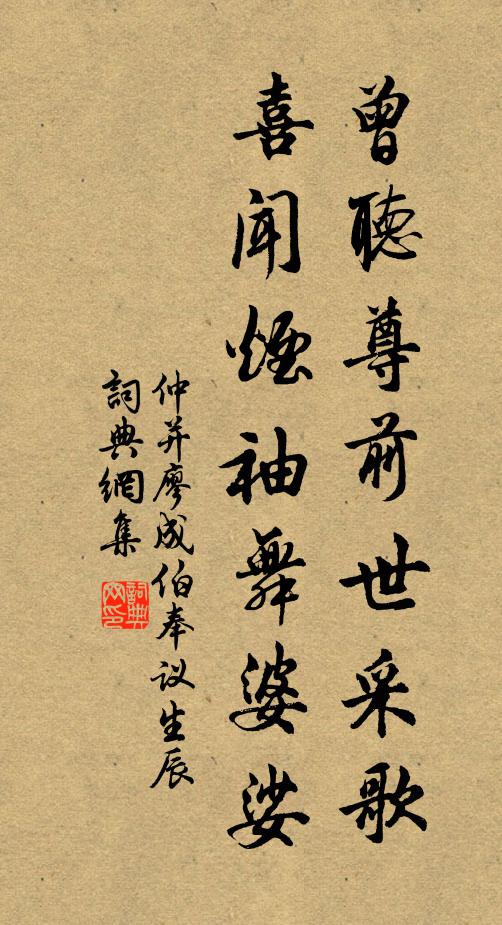 曾聽尊前世采歌
喜聞煙袖舞婆娑
仲并廖成伯奉议生辰
詞典網集
詞典网印